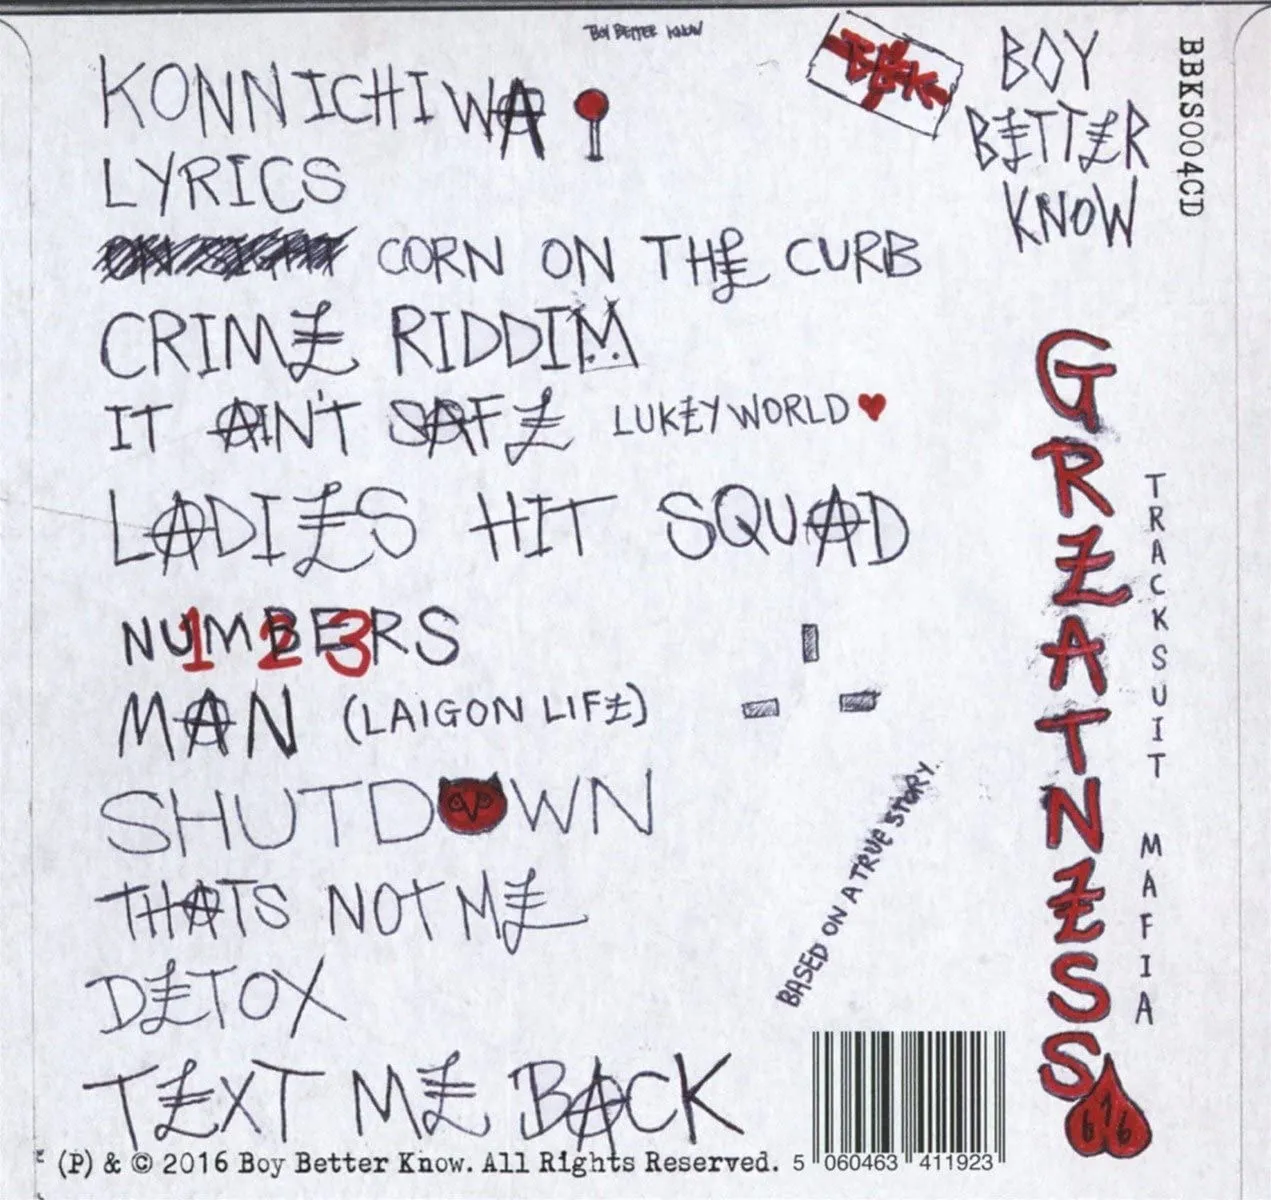 BOY BETTER KNOW
KONNICHIWA
LYRICS
CORN ON THE CURB
CRIME RIDDIM
IT AIN'T SAFE LUKEY WORLD
LADIES HIT SQUAD
NUMBERS
1 2 3
MAN (LAIGON LIFE)
SHUTDOWN
THATS NOT ME
DETOX
TEXT ME BACK
BBK
BOY
BETTER
KNOW
BBKS004CD
GREATNESS
TRACKSUIT MAFIA
BASED ON A TRUE STORY.
(P) & © 2016 Boy Better Know. All Rights Reserved.
5 060463 411923